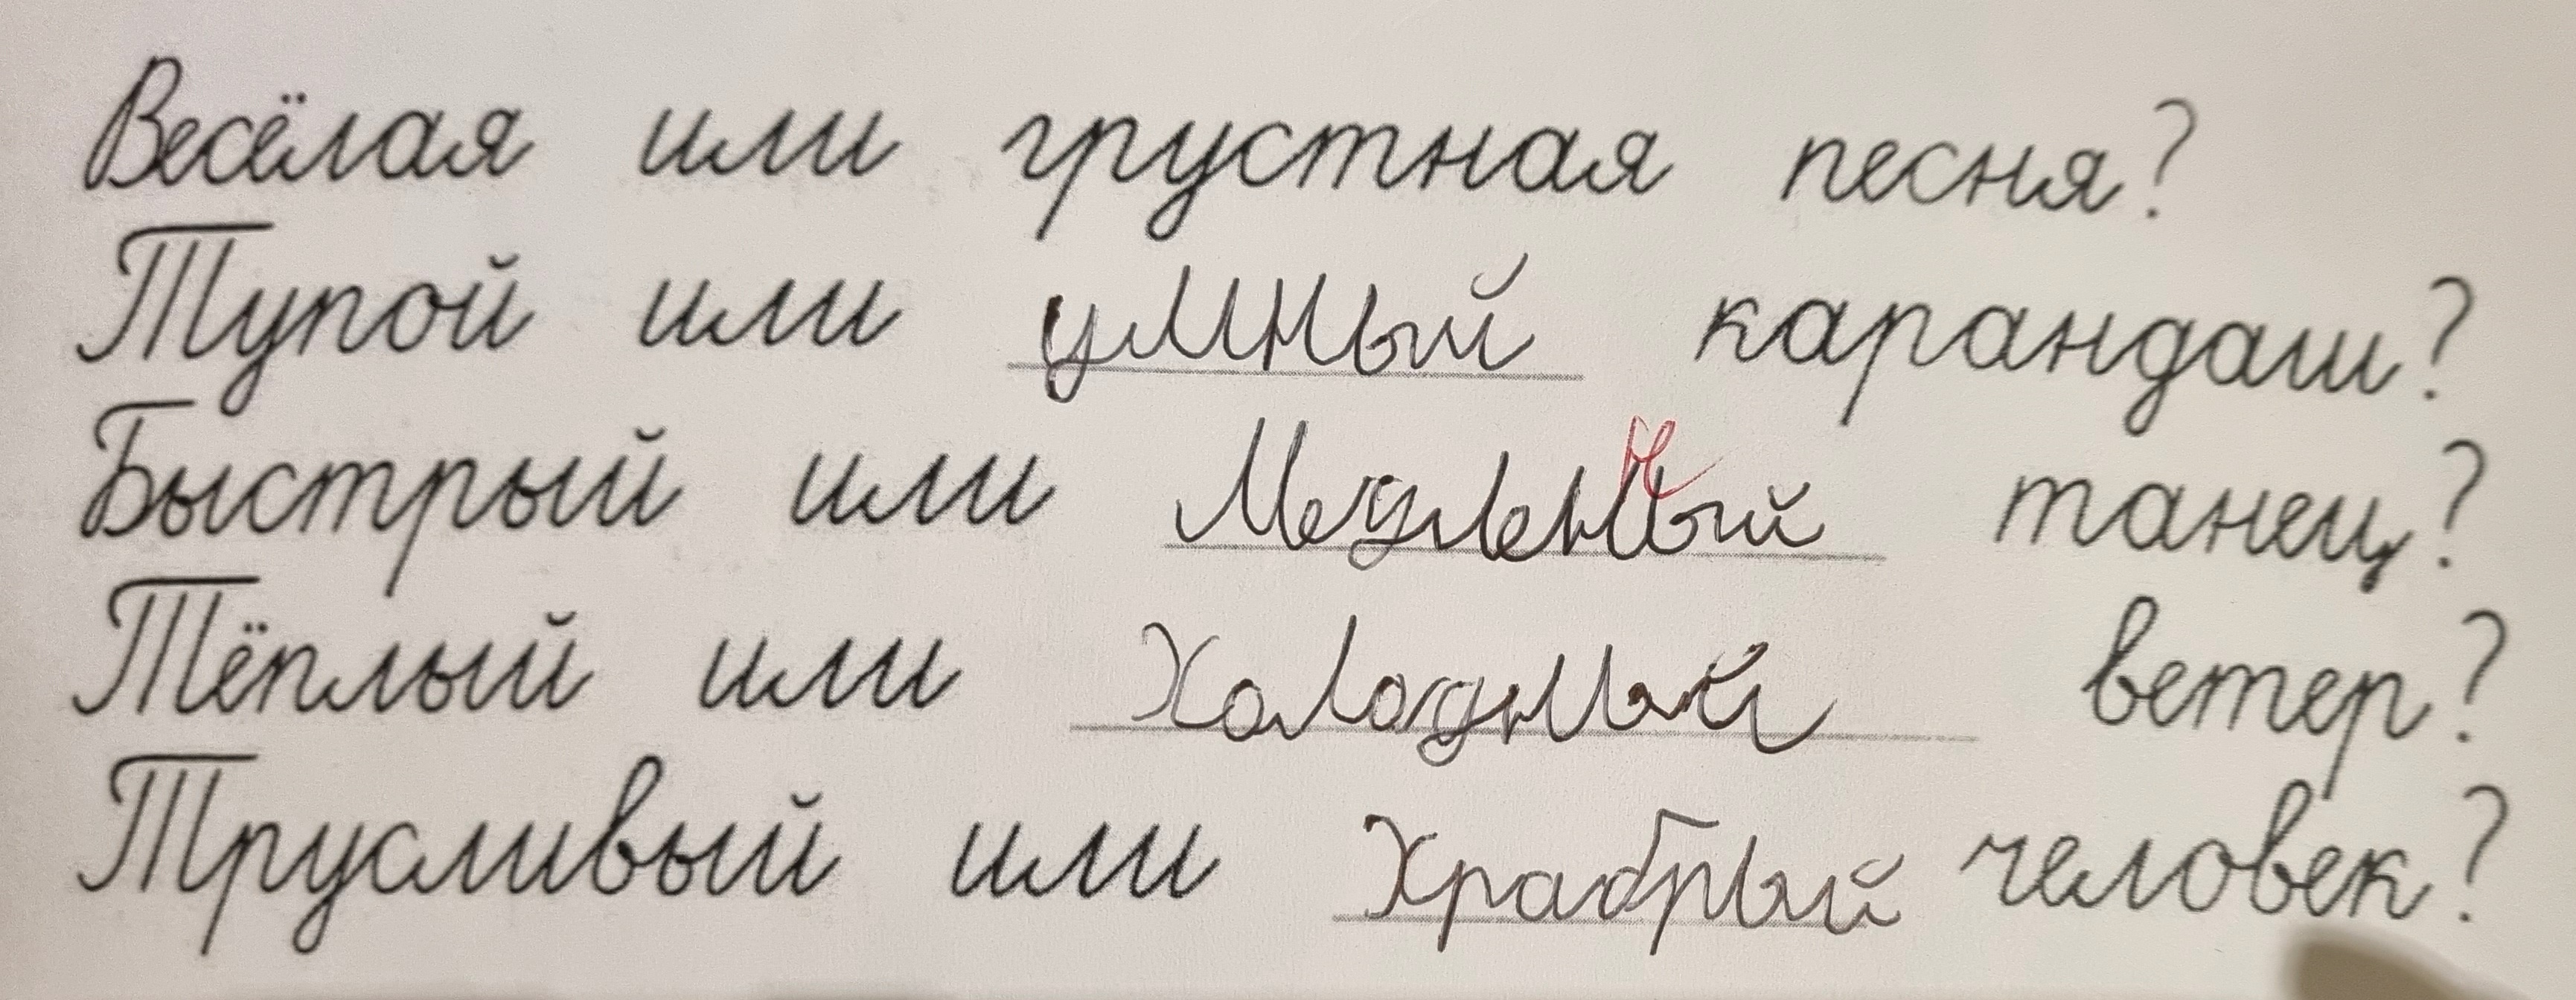 Весёлая или грустная песня?
Тупой или умный карандаш?
Быстрый или Медленный танец?
Тёплый или Холодный ветер?
Трусливый или Храбрый человек?